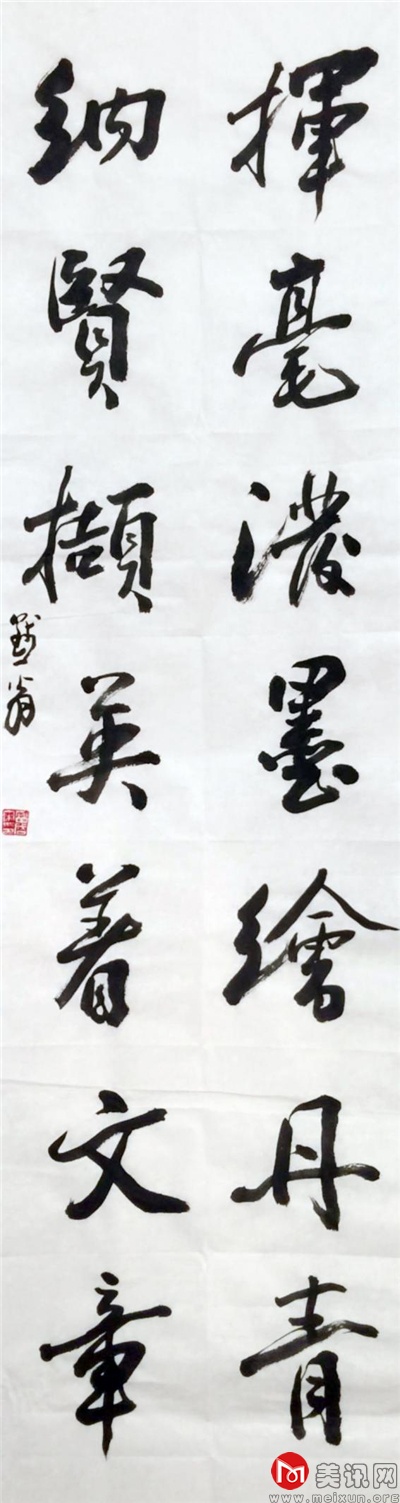 揮毫濃墨繪丹青
納賢擷英着文章
美讯网
www.meixun.org